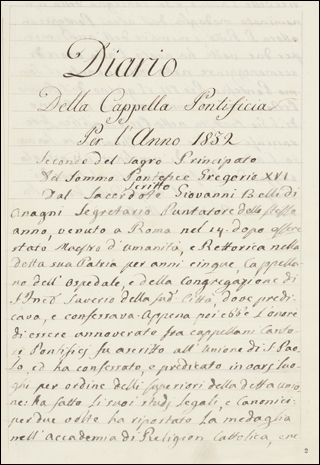 Diario
Della Cappella Pontificia
Per l'Anno 1832
Secondo del Sagro Principato
Del Sommo Pontefice Gregorio XVI
Scritto
Dal Sacerdote Giovanni Belli di
Anagni Segretario Puntatore dello stesso
anno, venuto a Roma nel 14. dopo essere
stato Maestro d'Umanità, e Rettorica nella
detta sua Patria per anni cinque, Cappella
no dell' Ospedale, e della Congregazione di
S. Saverio della Città, dove predi
cava, e confessava. Appena poi ebbe l'onore
di essere annoverato fra cappellani Canto
ri Pontifici fu ascritto all' Unione di S. Pao
lo, ed ha confessato, e predicato in varj luo
ghi per ordine delli superiori della detta unio
ne: ha fatto li suoi studj legali, e Canonici:
per due volte ha riportato la medaglia
nell' Accademia di Religion Cattolica,
2